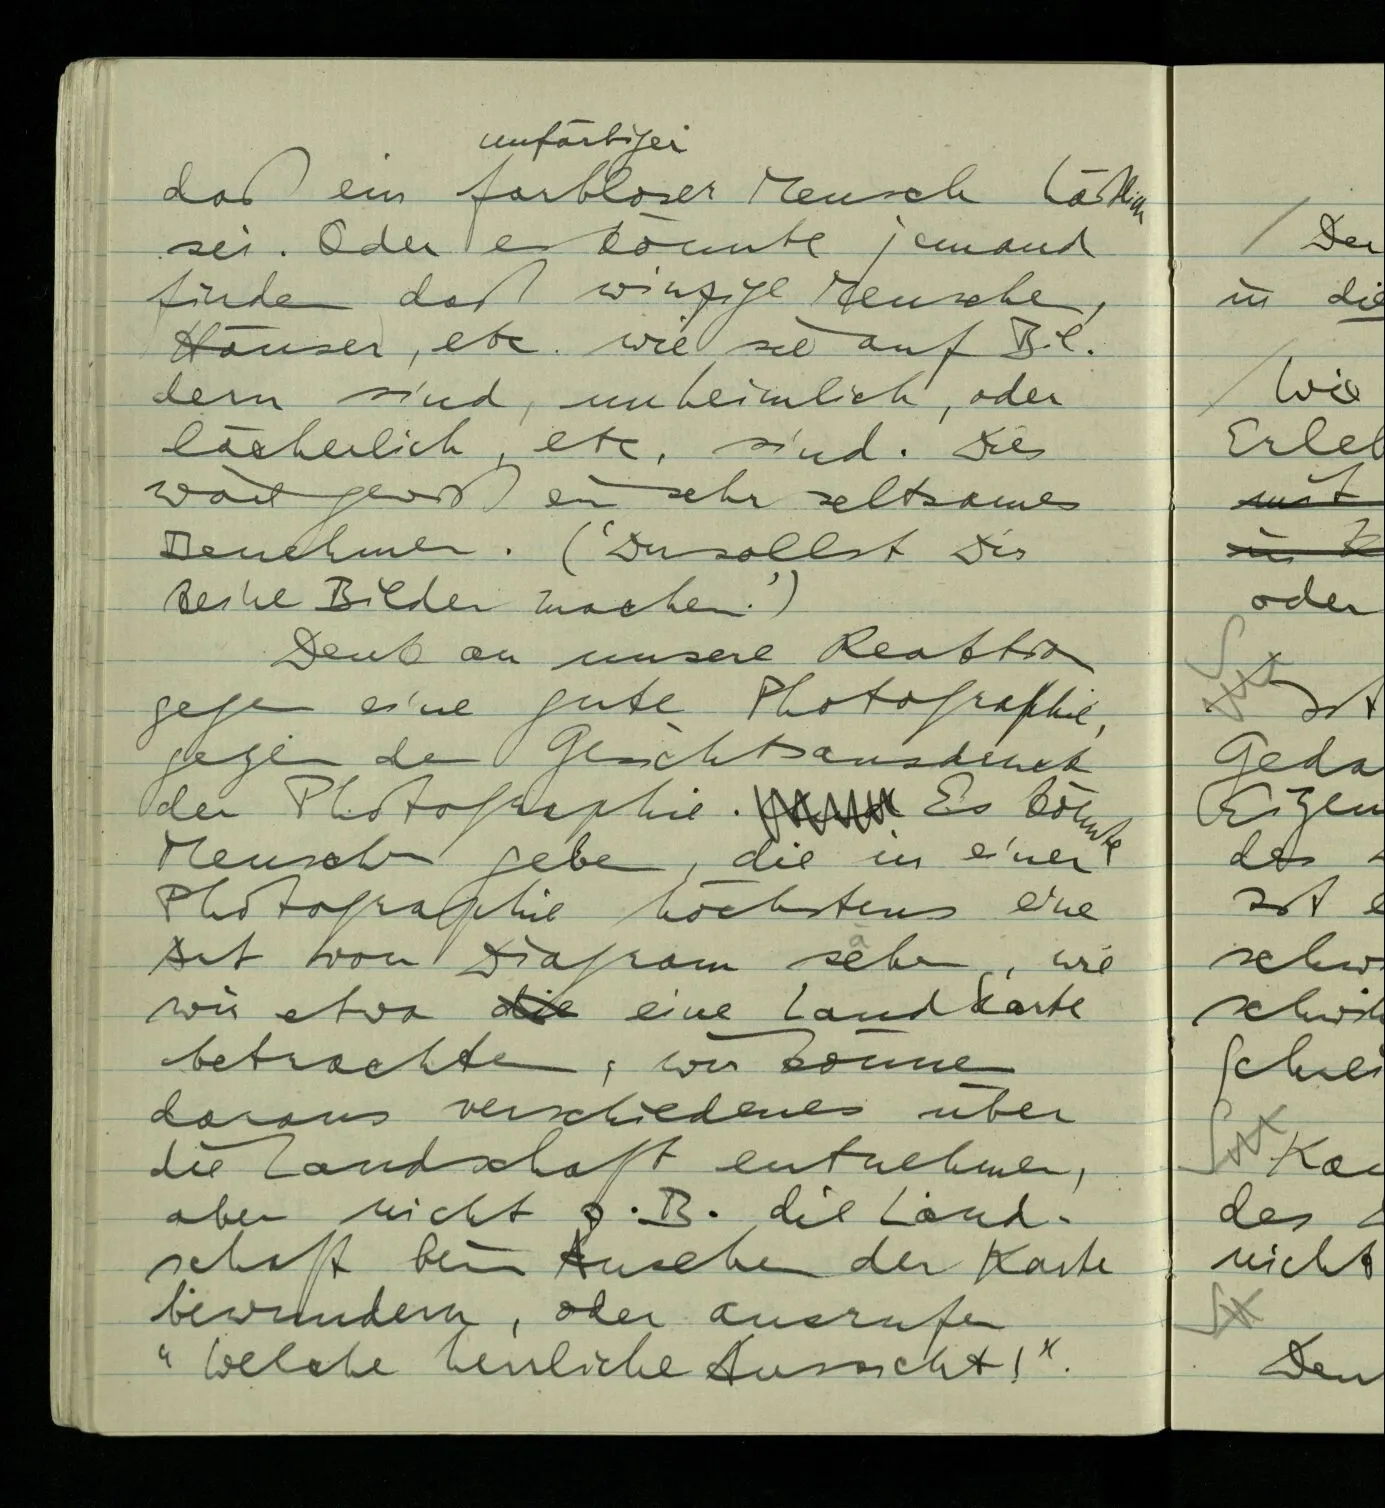 unfärbiger
daß ein farbloser Mensch häßlich
sei. Oder es könnte jemand
finden daß winzige Menschen,
Häuser, etc. wie sie auf Bil-
dern sind, unheimlich, oder
lächerlich, etc. sind. Dies
wäre gewiß ein sehr seltsames
Benehmen. ('Du sollst Dir
keine Bilder machen.')
Denk an unsere Reaktion
gegen eine gute Photographie,
gegen den Gesichtsausdruck
der Photographie. Es könnte
Menschen geben, die in einer
Photographie höchstens eine
Art von Diagram sehen, wie
wir etwa die eine Landkarte
betrachten; wir können
daraus verschiedenes über
die Landschaft entnehmen,
aber nicht z.B. die Land-
schaft beim Ansehen der Karte
bewundern, oder ausrufen
"Welche herrliche Aussicht!".
Der
in die
Wie
Erleb
mit
oder
ist
Geda
Eigen
des
ist e
schw
schwi
schrei
Kan
des
nicht
Den